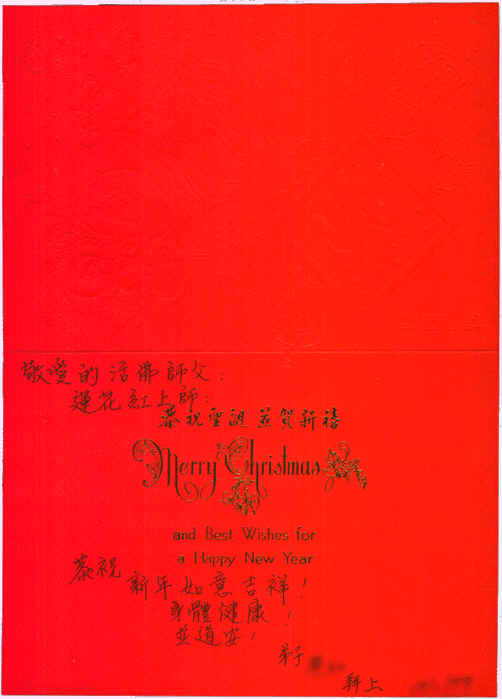 敬愛的活佛師父：
蓮花紅上師：
恭祝聖誕 並賀新禧
Merry Christmas
and Best Wishes for
a Happy New Year
恭祝
新年如意吉祥！
身體健康！
並道安！
弟子
拜上